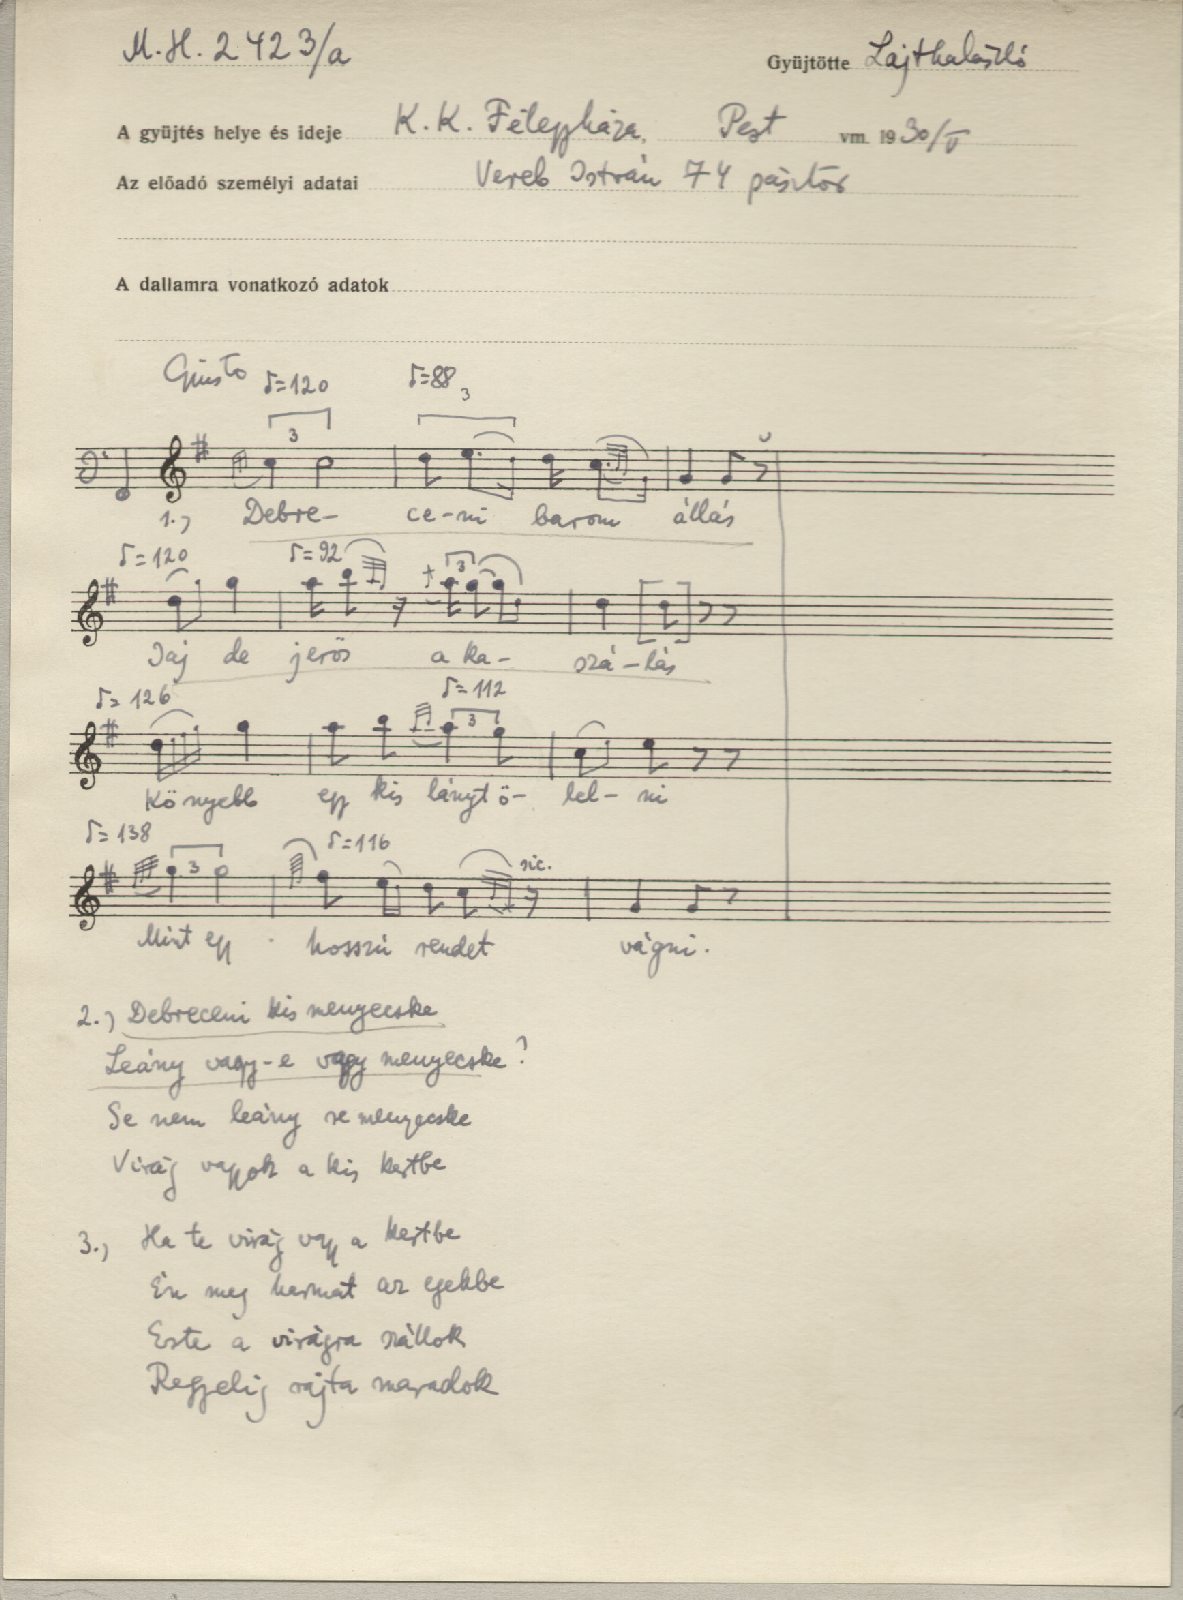 M.H. 2423/a
Gyüjtötte Lajtha László
A gyüjtés helye és ideje K.K. Félegyháza, Pest vm. 1930/V
Az előadó személyi adatai Vereb István 74 pásztor
A dallamra vonatkozó adatok
Giusto ♪=120 ♪=88 3
3
1.) Debre- ce-ni barom állás
♪=120 ♪=92 3
Jaj de jerős a ka- szá-lás
♪=126 ♪=112
3
Könyebb egy kis lányt ö- lel- ni
♪=138 ♪=116
3 sic.
Mint egy hosszú rendet vágni.
2.) Debreceni kis menyecske
Leány vagy-e vagy menyecske?
Se nem leány se menyecske
Virág vagyok a kis kertbe
3.) Ha te virág vagy a kertbe
Én meg harmat az egekbe
Este a virágra szállok
Regyelig rajta maradok